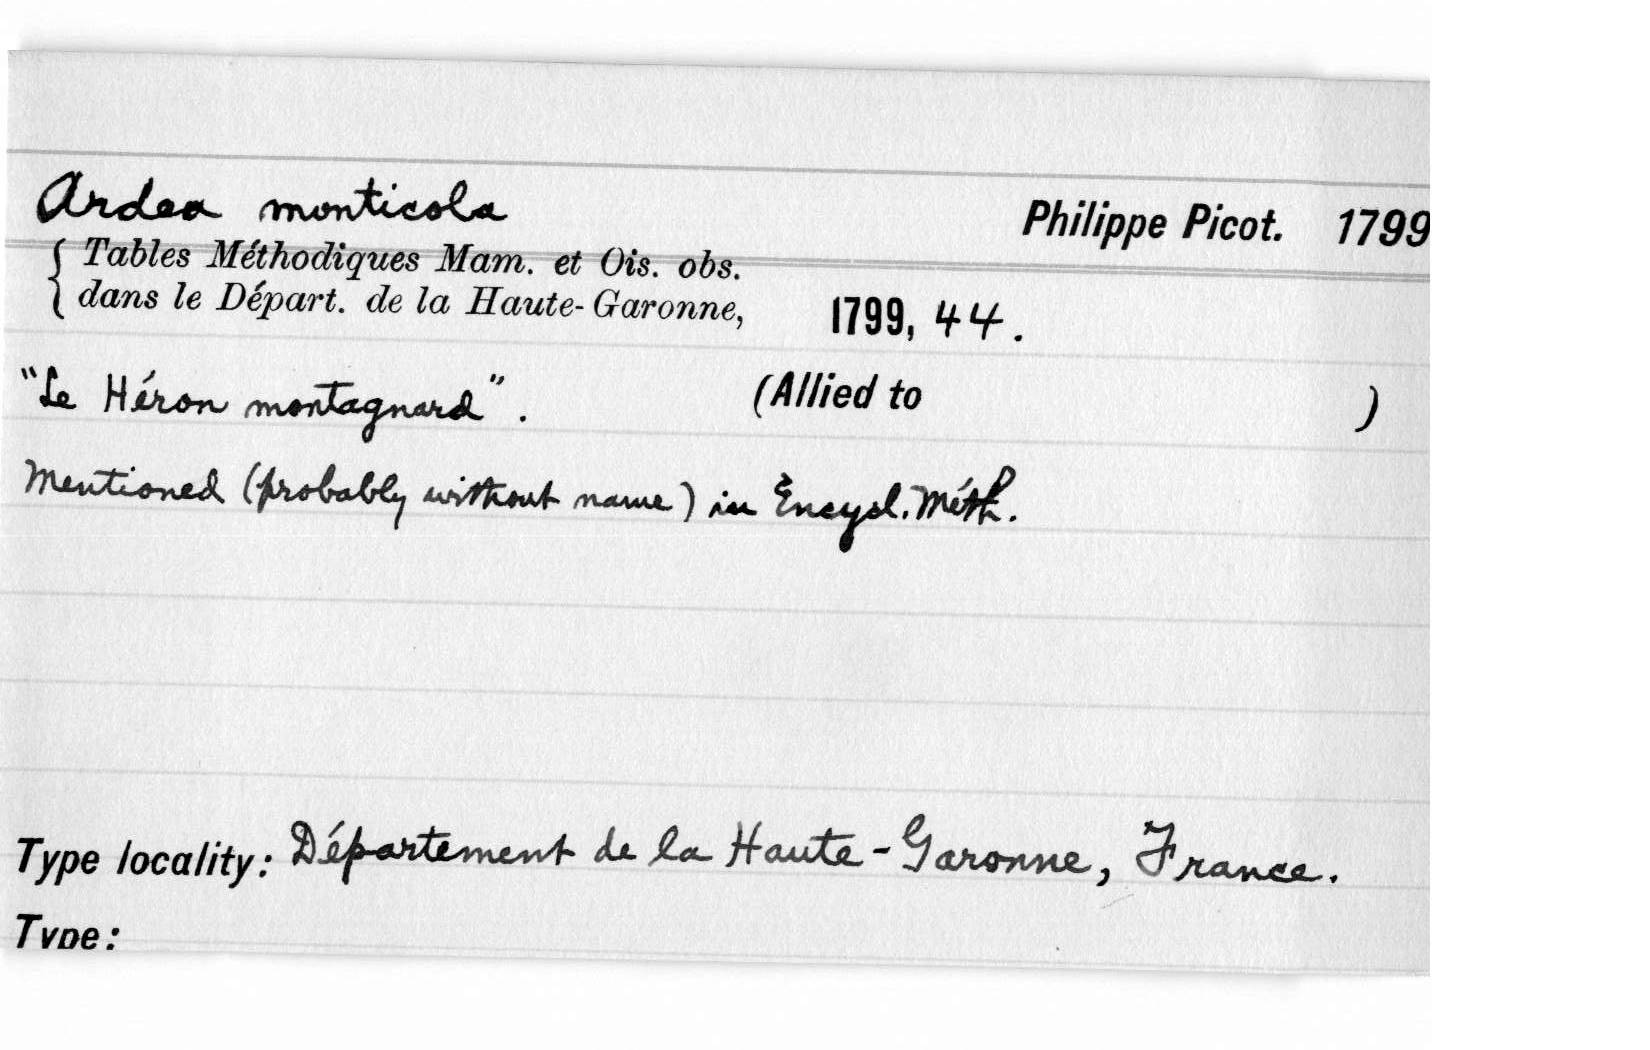 Ardea monticola Philippe Picot. 1799
Tables Méthodiques Mam. et Ois. obs.
dans le Départ. de la Haute-Garonne, 1799, 44.
"Le Héron montagnard". (Allied to )
Mentioned (probably without name) in Encycl. Méth.
Type locality: Département de la Haute-Garonne, France.
Type: